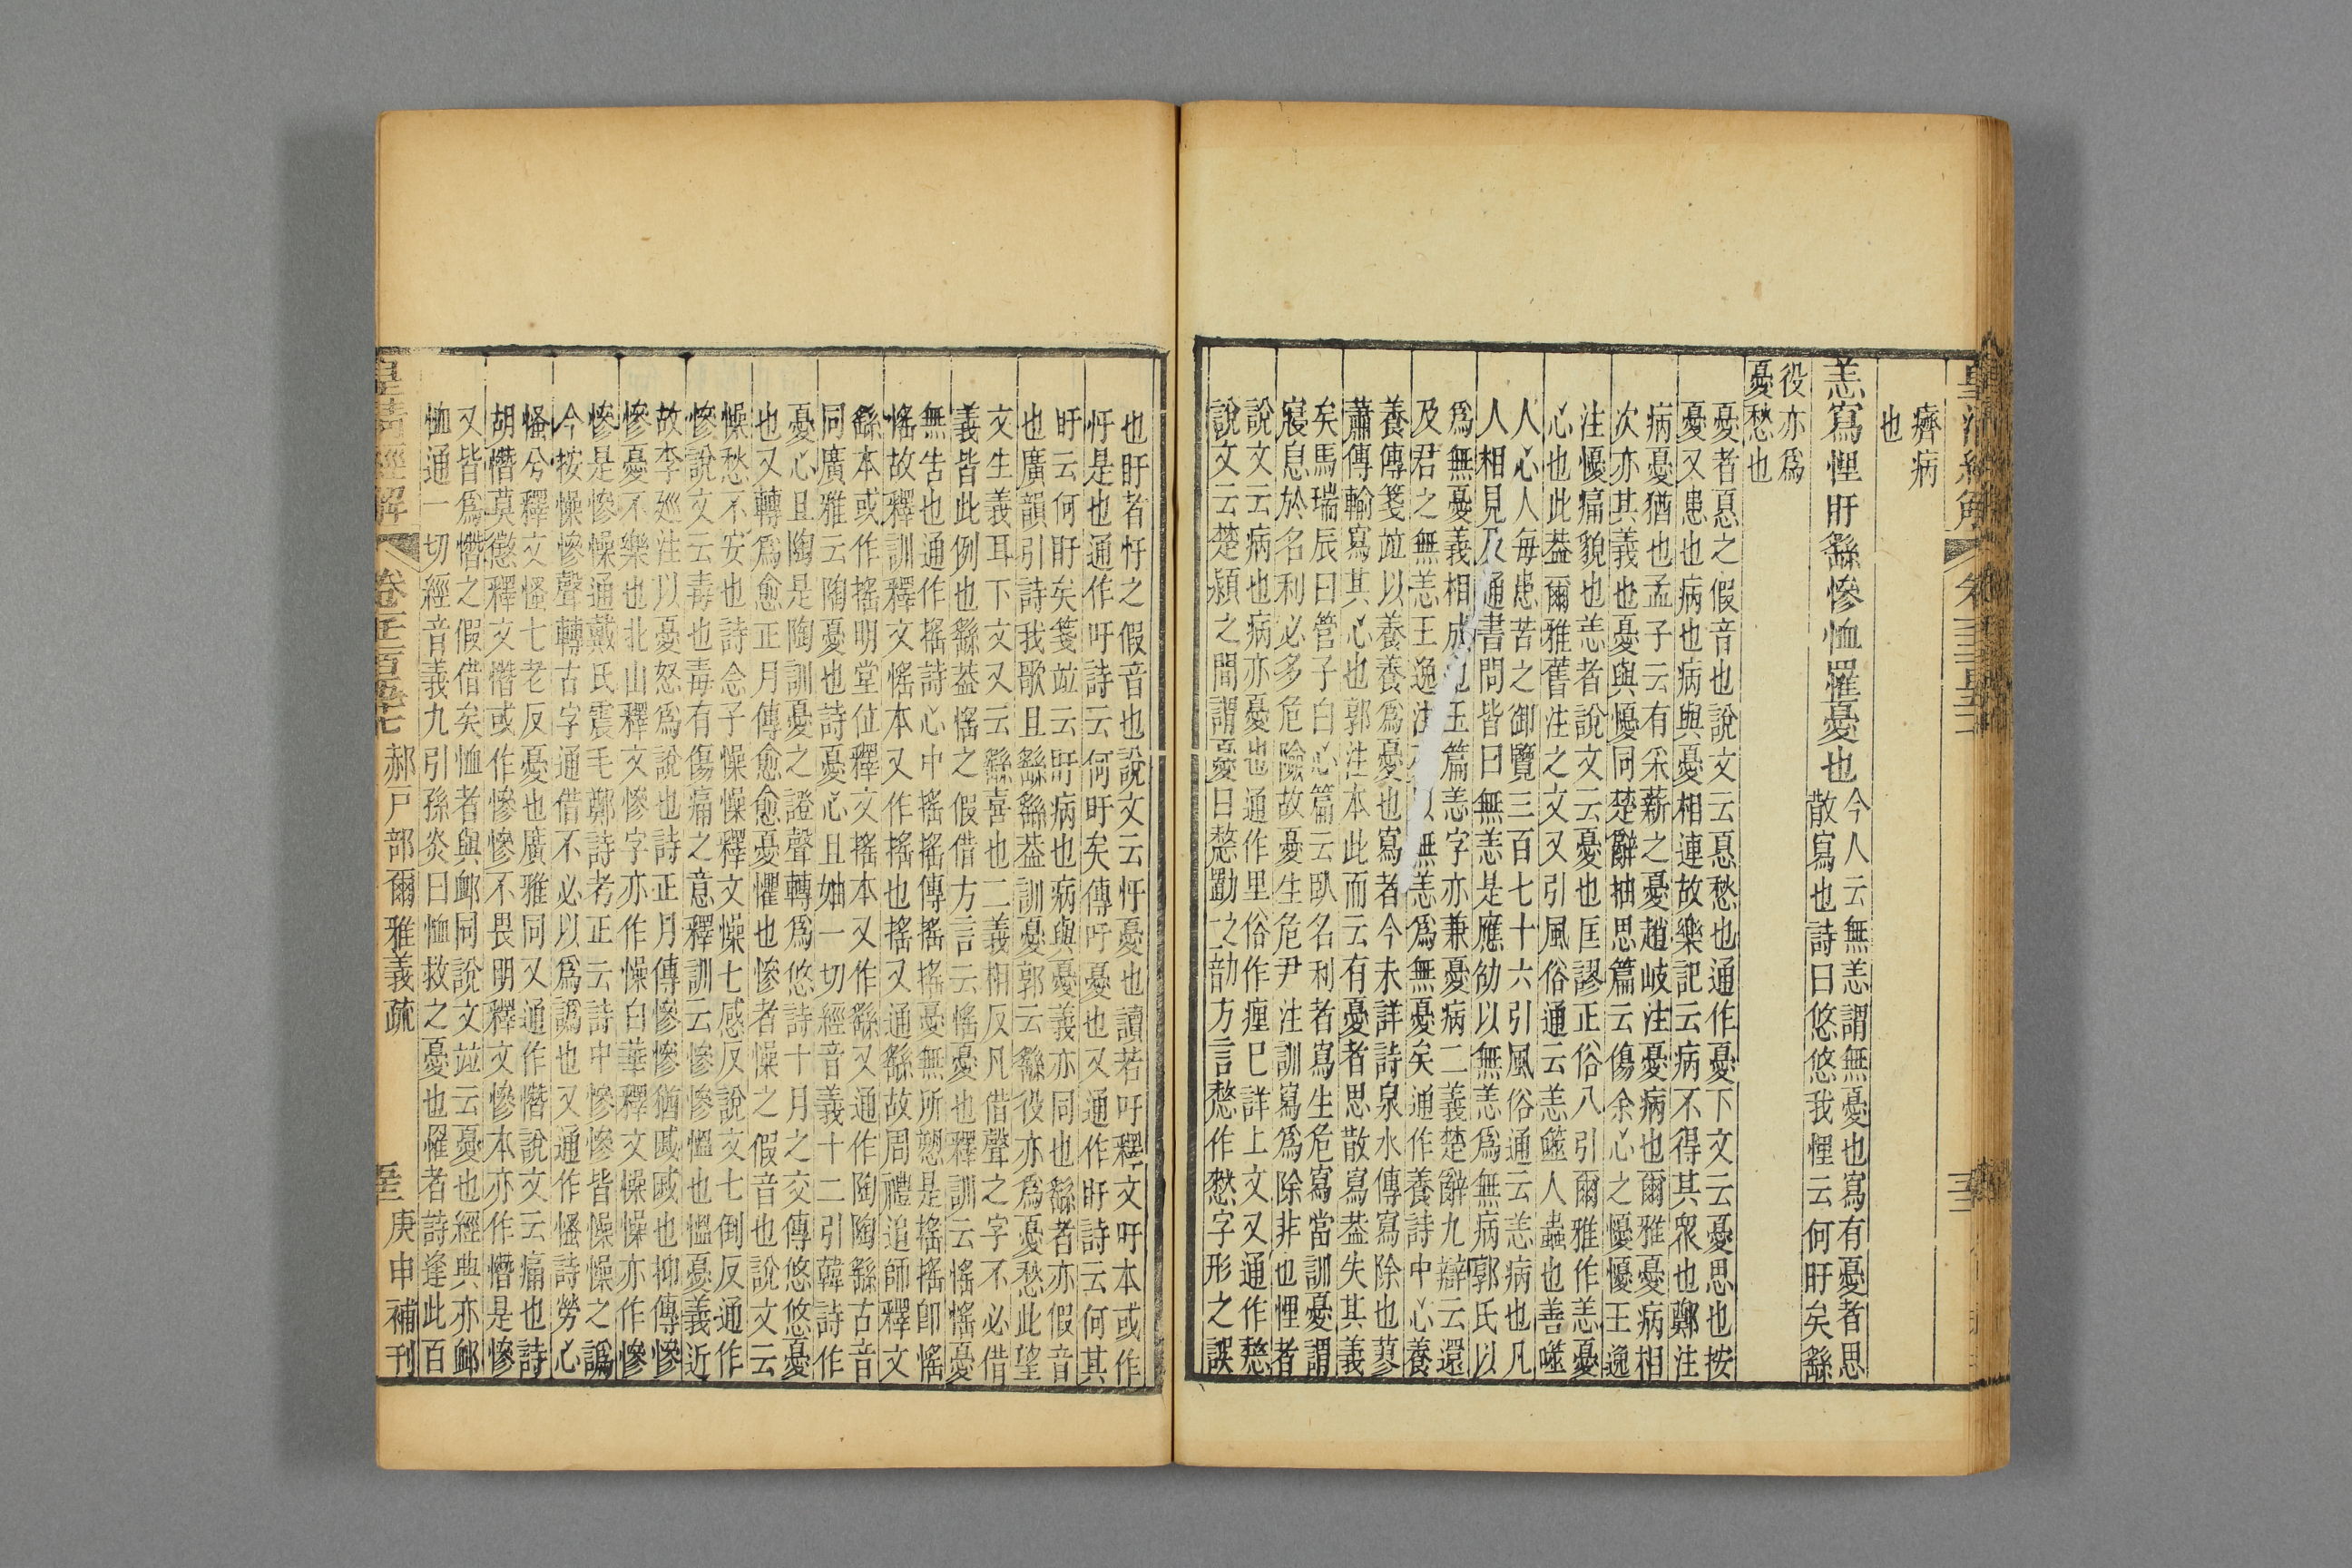 癠病
也
恙寫悝盱繇慘恤罹憂也
今人云無恙謂無憂也寫有憂者思
散寫也詩曰悠悠我悝云何盱矣繇
役亦爲
憂愁也
憂者惪之假音也說文云惪愁也通作憂下文云憂思也按
憂又患也病也病與憂相連故樂記云病不得其衆也鄭注
病憂猶也孟子云有采薪之憂趙岐注憂病也爾雅憂病相
次亦其義也憂與懮同楚辭抽思篇云傷余心之懮懮王逸
注懮痛貌也恙者說文云憂也匡謬正俗八引爾雅作恙憂
心也此葢爾雅舊注之文又引風俗通云恙噬人蟲也善噬
人心人每患苦之御覽三百七十六引風俗通云恙病也凡
人相見及通書問皆曰無恙是應劭以無恙爲無病郭氏以
爲無憂義相成也玉篇恙字亦兼憂病二義楚辭九辯云還
及君之無恙王逸注以無恙爲無憂矣通作養詩中心養
養傳箋竝以養養爲憂也寫者今未詳詩泉水傳寫除也蓼
蕭傳輸寫其心也郭注本此而云有憂者思散寫葢失其義
矣馬瑞辰曰管子白心篇云臥名利者寫生危寫當訓憂謂
寢息於名利必多危險故憂生危尹注訓寫爲除非也悝者
說文云病也病亦憂也通作里俗作瘇巳詳上文又通作憖
說文云楚潁之間謂憂曰憖方言憖作愁字形之誤
也盱者忬之假音也說文云忬憂也讀若吁釋文吁本或作
忬是也通作吁詩云何盱矣傳吁憂也又通作盱詩云何其
盱云何盱矣箋竝云盱病也病與憂義亦同也繇者亦假音
也廣韻引詩我歌且繇繇葢訓憂郭云繇役亦爲憂愁此望
文生義耳下文又云繇喜也二義相反凡借聲之字不必借
義皆此例也繇葢愮之假借方言云愮憂也釋訓云愮愮憂
無告也通作搖詩心中搖搖傳搖搖憂無所愬是搖搖卽愮
愮故釋訓釋文愮本又作搖也搖又通繇故周禮追師釋文
繇本或作搖明堂位釋文搖本又作繇又通作陶陶繇古音
同廣雅云陶憂也詩憂心且妯一切經音義十二引韓詩作
憂心且陶是陶訓憂之證聲轉爲悠詩十月之交傳悠悠憂
也又轉爲愈正月傳愈愈憂懼也慘者懆之假音也說文云
懆愁不安也詩念子懆懆釋文懆七感反說文七倒反通作
慘說文云毒也毒有傷痛之意釋訓云慘慘慍也慍憂義近
故李廵注以憂怒爲說也詩正月傳慘慘猶戚戚也抑傳慘
慘憂不樂也北山釋文慘字亦作懆白華釋文懆懆亦作慘
慘是慘懆通戴氏震毛鄭詩考正云詩中慘慘皆懆懆之譌
今按懆慘聲轉古字通借不必以爲譌也又通作慅詩勞心
慅兮釋文慅七老反憂也廣雅同又通作憯說文云痛也詩
胡憯莫懲釋文憯或作慘慘不畏明釋文慘本亦作憯是慘
又皆爲憯之假借矣恤者與卹同說文竝云憂也經典亦卹
恤通一切經音義九引孫炎曰恤救之憂也罹者詩逢此百
皇清經解
卷千二百
郝戶部爾雅義疏
庚申補刊